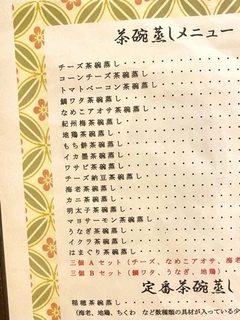 茶碗蒸しメニュー
チーズ茶碗蒸し
コーンチーズ茶碗蒸し
トマトベーコン茶碗蒸し
鯛ワタ茶碗蒸し
なめこアオサ茶碗蒸し
紀州梅茶碗蒸し
地鶏茶碗蒸し
もち餅茶碗蒸し
イカ墨茶碗蒸し
ワサビ茶碗蒸し
チーズ納豆茶碗蒸し
海老茶碗蒸し
カニ茶碗蒸し
明太子茶碗蒸し
マヨサーモン茶碗蒸し
うなぎ茶碗蒸し
イクラ茶碗蒸し
はまぐり茶碗蒸し
三個Aセット(チーズ、なめこアオサ、海老
三個Bセット(鯛ワタ、うなぎ、地鶏)
定番茶碗蒸し
稲穂茶碗蒸し
(海老、地鶏、ちくわ など数種類の具材が入っている少